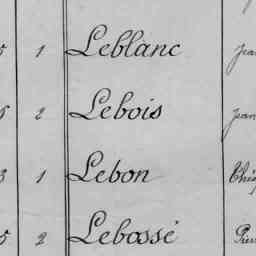 1 Leblanc
2 Lebois
1 Lebon
2 Lebossé